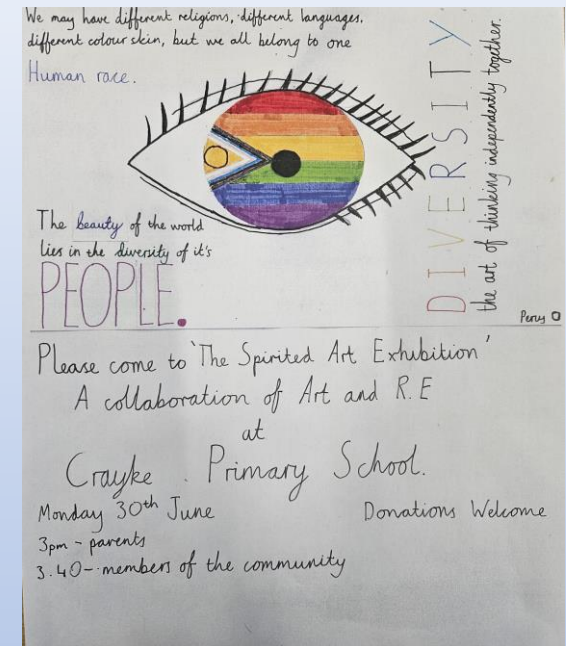 We may have different religions, different languages,
different colour skin, but we all belong to one
Human race.
The beauty of the world
lies in the diversity of it's
PEOPLE.
DIVERSITY
the art of thinking independently together.
Percy O
Please come to 'The Spirited Art Exhibition'
A collaboration of Art and R.E
at
Crayke Primary School.
Monday 30th June
Donations Welcome
3pm - parents
3.40 - members of the community